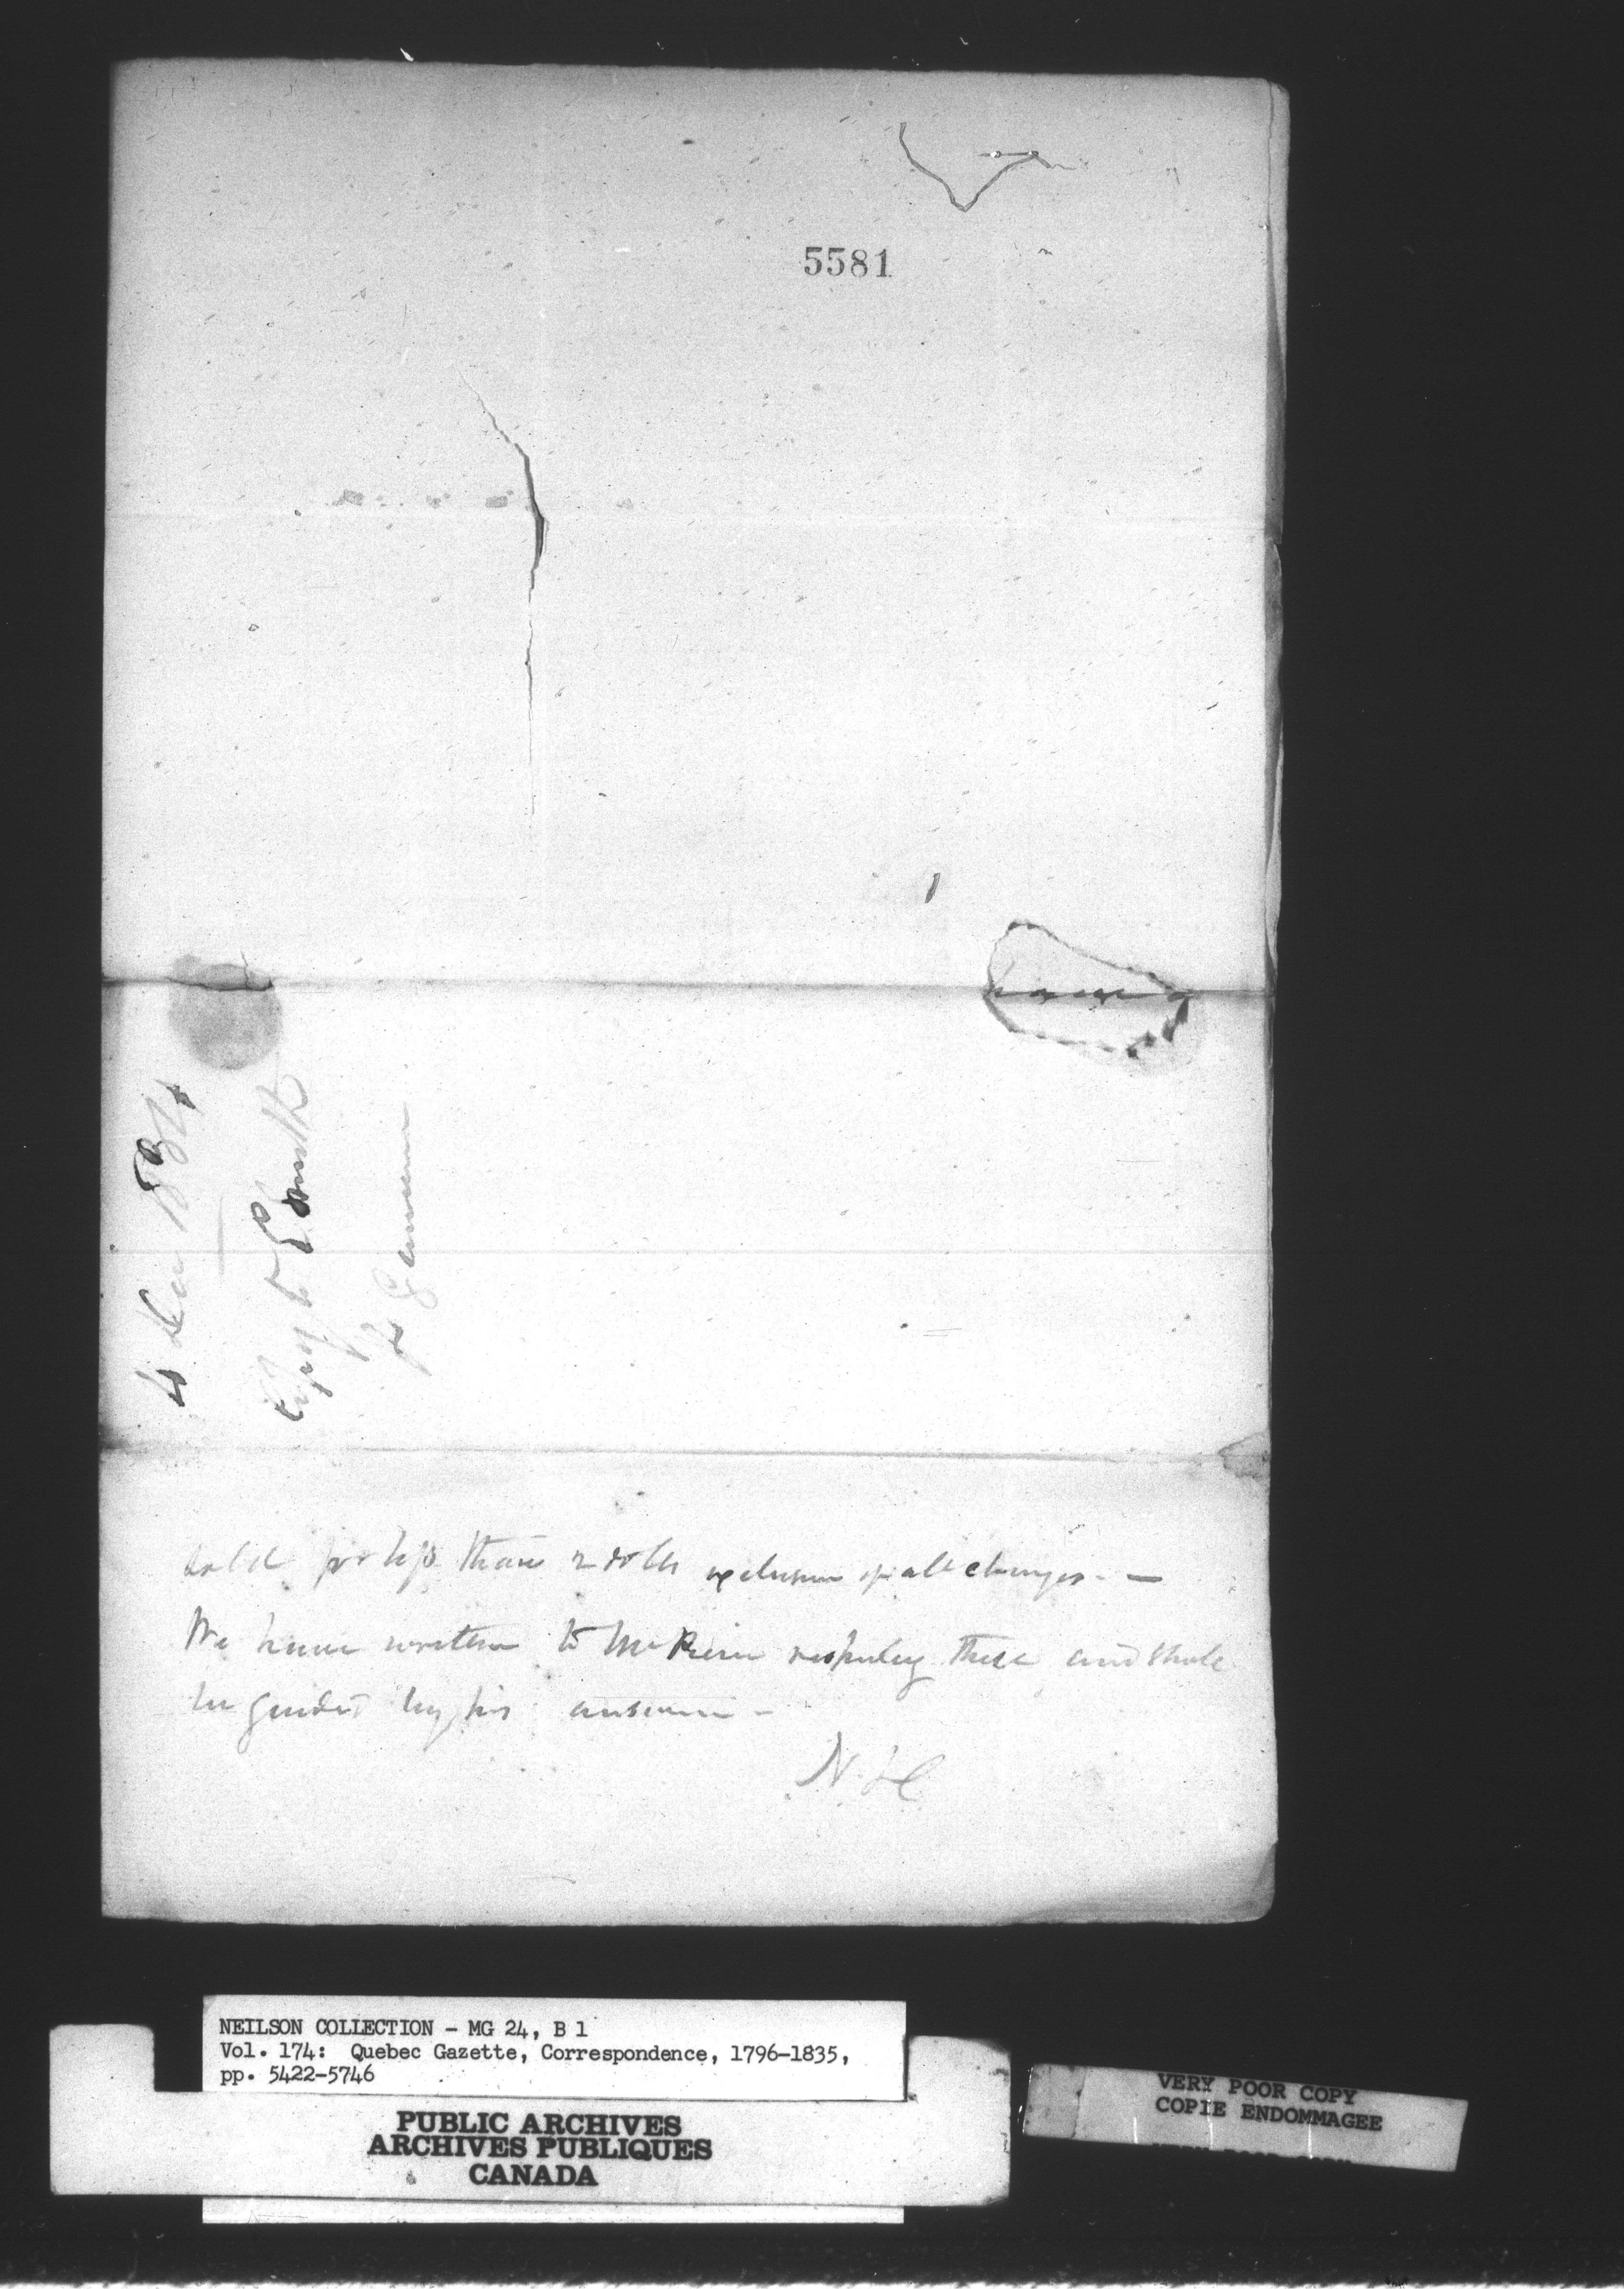 5581
4 Dec 1834
Copy to
sold for less than 2 dolls exclusive of all charges. —
We have written to Mr respecting these and shall
be guided by his answer —
N. &C
NEILSON COLLECTION - MG 24, B 1
Vol. 174: Quebec Gazette, Correspondence, 1796-1835,
pp. 5422-5746
PUBLIC ARCHIVES
ARCHIVES PUBLIQUES
CANADA
VERY POOR COPY
COPIE ENDOMMAGEE